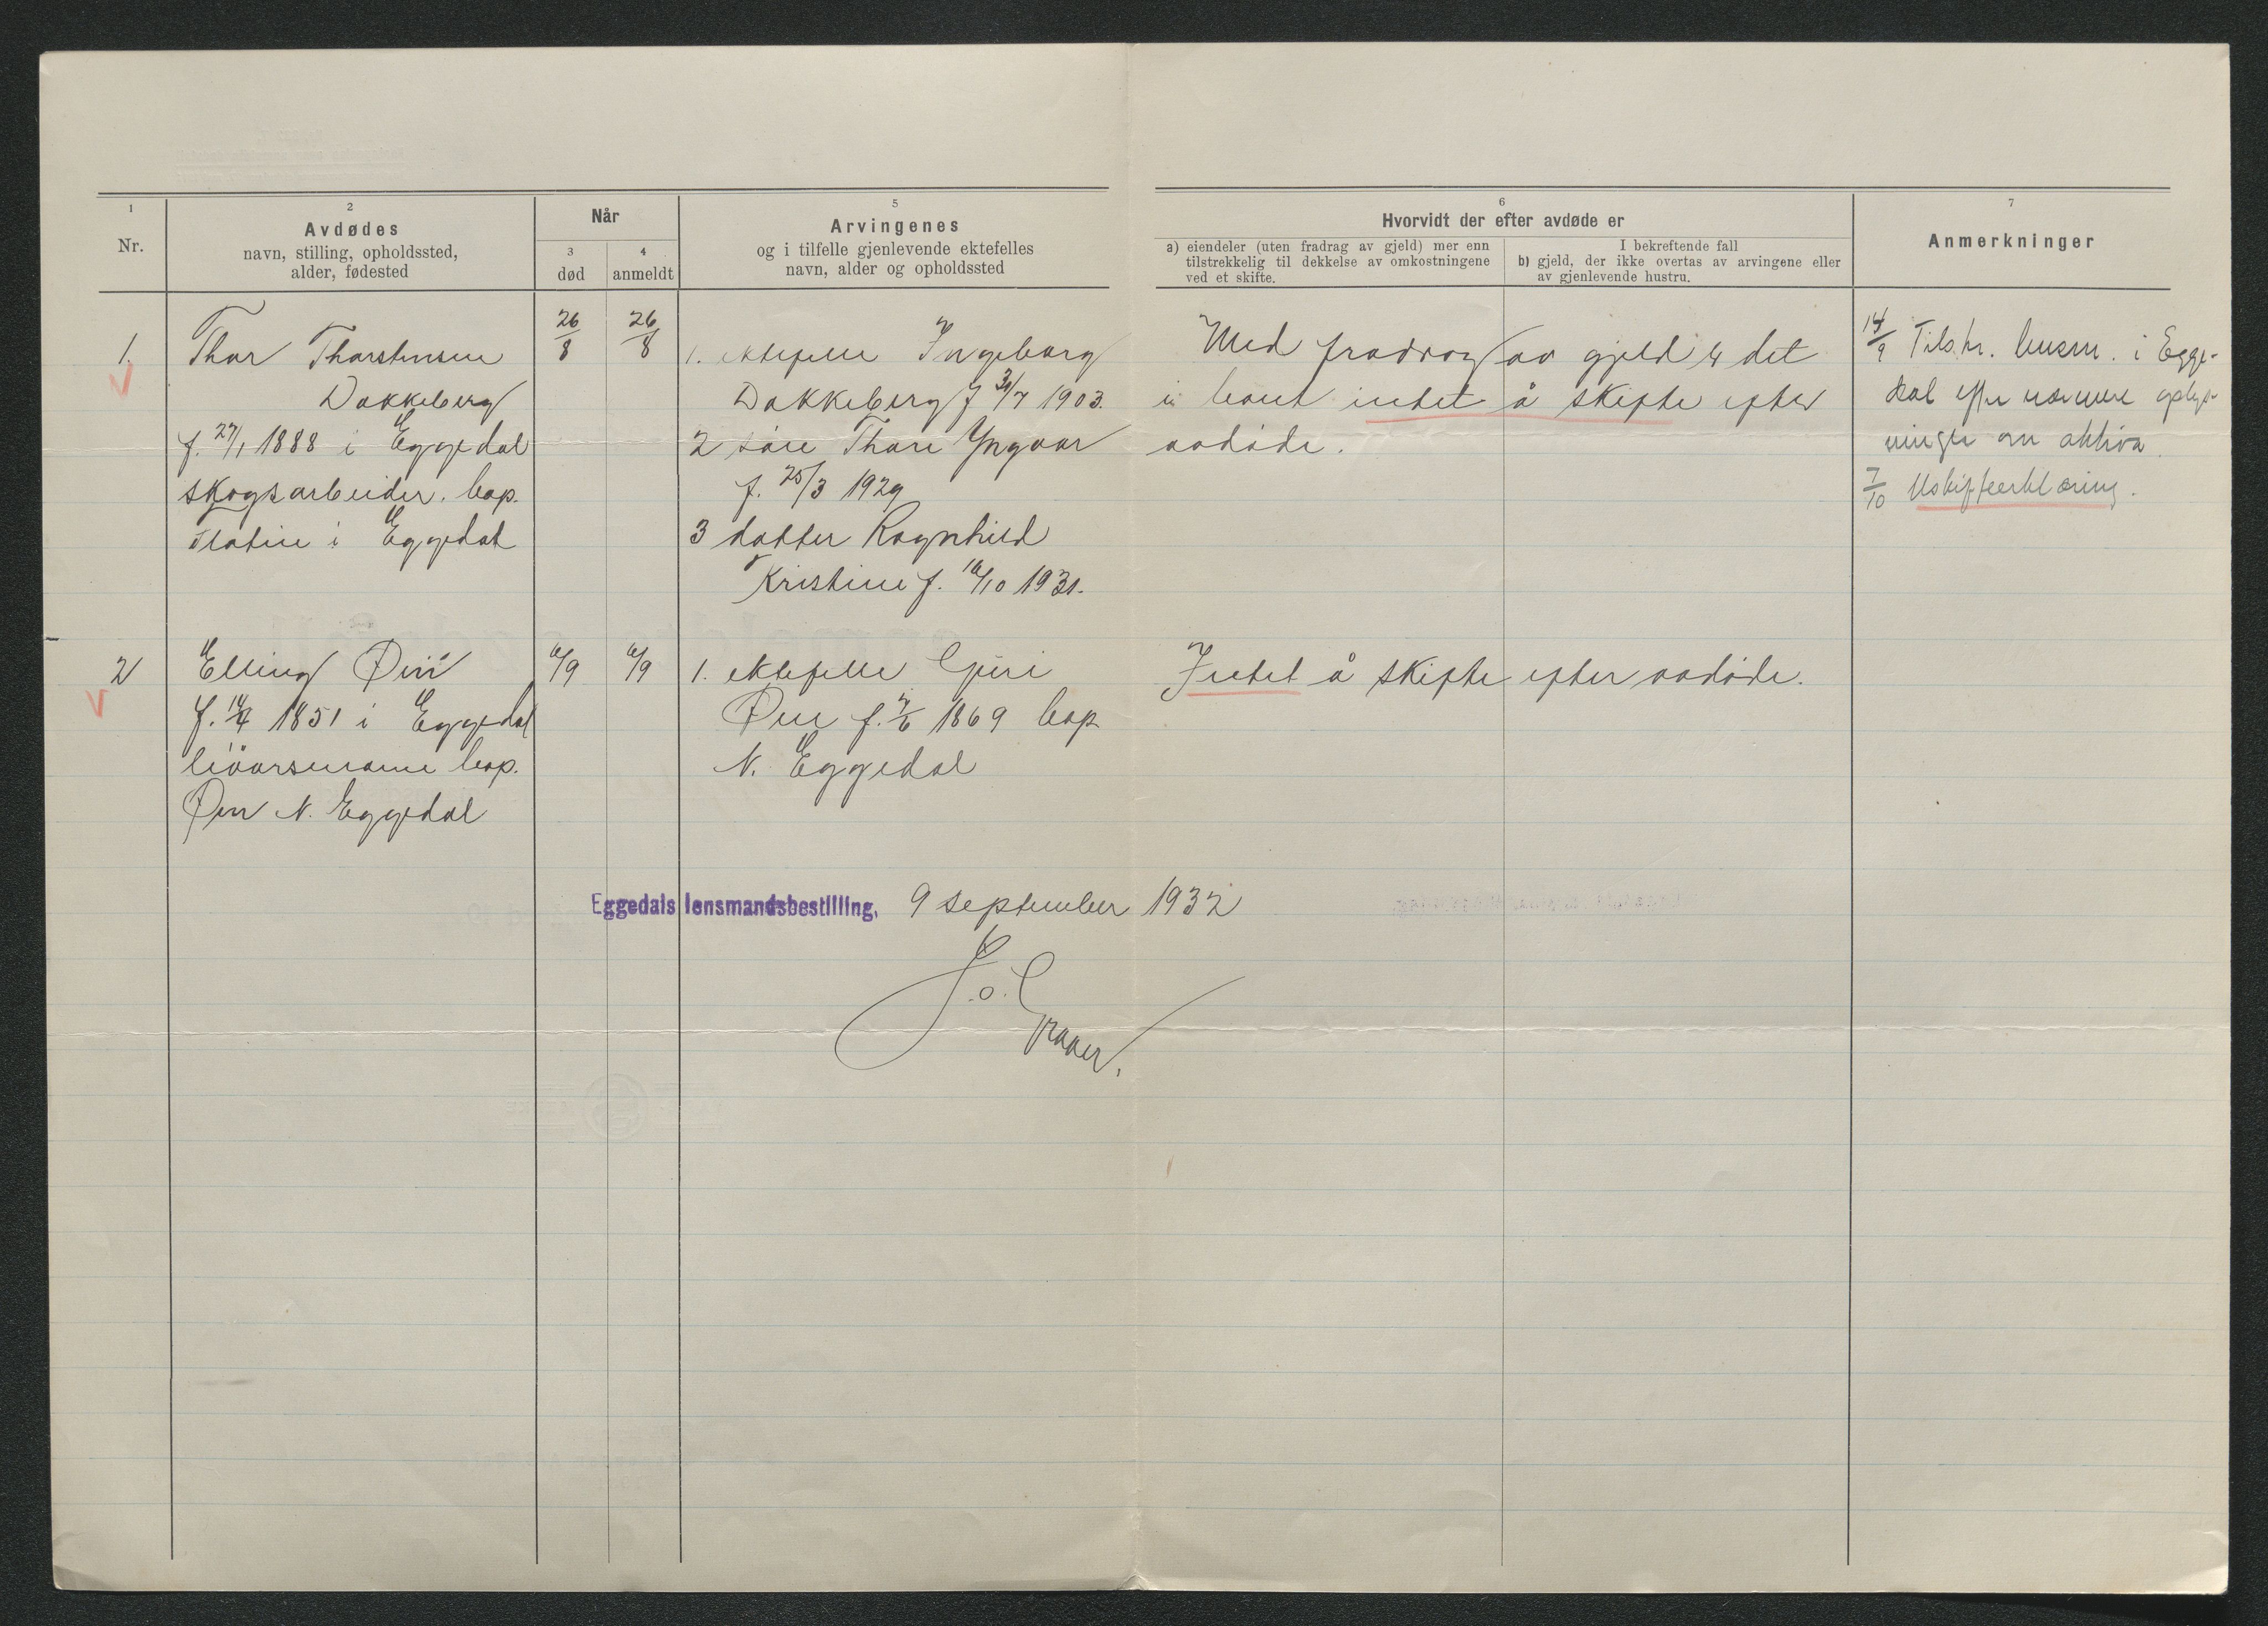 1
Nr.
2
Avdødes
navn, stilling, opholdssted,
alder, fødested
Når
3
død
4
anmeldt
5
Arvingenes
og i tilfelle gjenlevende ektefelles
navn, alder og opholdssted
6
Hvorvidt der efter avdøde er
a) eiendeler (uten fradrag av gjeld) mer enn
tilstrekkelig til dekkelse av omkostningene
ved et skifte.
I bekreftende fall
b) gjeld, der ikke overtas av arvingene eller
av gjenlevende hustru.
7
Anmerkninger
1.
Thor Thorstensen
Dokkeberg
f. 27/1 1888 i Eggedal
skogsarbeider. bop.
i Eggedal
26/8
26/8
1. ektefelle Ingeborg
Dokkeberg f 31/7 1903.
2 søn Thore Yngvar
f. 25/3 1929
3 datter Ragnhild
Kristine f. 16/10 1931.
Med fradrag av gjeld er det
intet å skifte efter
avdøde.
14/9 i Egge-
dal efter nærmere oplys-
ninger om aktiva.
7/10 Uskifteerklæring.
2
Elling Øen
f. 1851 i Eggedal
livørsmann bop.
Øen N. Eggedal
6/9
6/9
1. ektefelle Guri
Øen f. 1869 bop
N. Eggedal
Intet å skifte efter avdøde.
Eggedals lensmandsbestilling, 9 september 1932